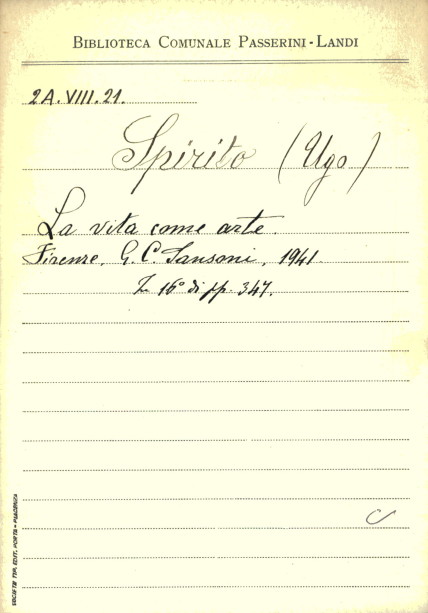 BIBLIOTECA COMUNALE PASSERINI-LANDI
2A.VIII.21.
Spirito (Ugo)
La vita come arte.
Firenze, G. C. Sansoni, 1941.
16° di pp. 347.
SOCIETÀ TIP. EDIT. PORTA - PIACENZA